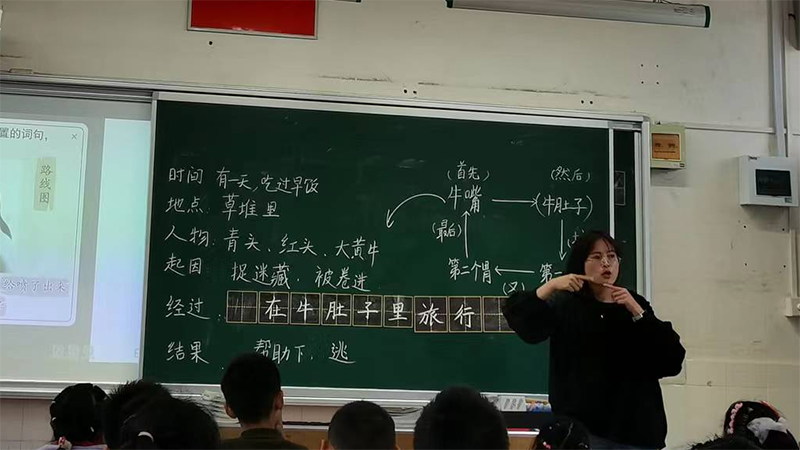 置的词句,
路线图
时间 有一天,吃过早饭
地点: 草堆里
人物: 青头、红头、大黄牛
起因: 捉迷藏, 被卷进
经过: 在牛肚子里旅行
结果: 帮助下, 逃
(首先)
牛嘴
(然后)
(牛肚子)
(最后)
第二个胃
(又)
第一